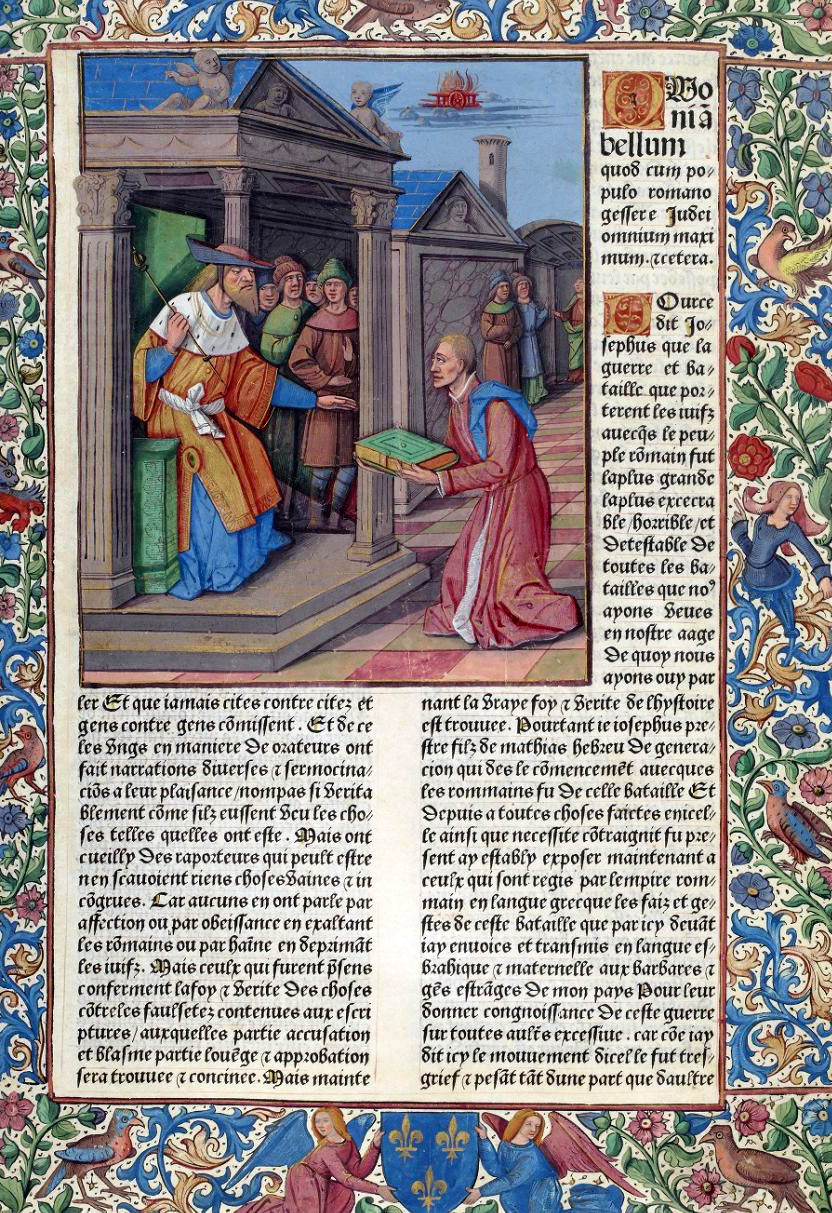 Quoniã
bellum
quod cum po⸗
pulo romano
gessere Judei
omnium maxi
mum. ⁊cetera.
Ource
dit Jo⸗
sephus que la
guerre et ba⸗
taille que por⸗
terent les iuifz
avecq̃s le peu⸗
ple rõmain fut
la plus grande
la plus execra
ble / horrible / et
detestable de
toutes les ba⸗
tailles que noꝰ
ayons veues
en nostre aage
De quoy nous
ayons ouy par
ler Et que iamais cites contre citez et
gens contre gens cõmissent. Et de ce
les vngs en maniere de orateurs ont
fait narrations diuerses ⁊ sermocina⸗
ciõs a leur plaisance / nompas si verita
blement cõme silz eussent veu les cho⸗
ses telles quelles ont este. Mais ont
cueilly des raporteurs qui peult estre
nen scauoient riens choses vaines ⁊ in
cõgrues. Car aucuns en ont parle par
affection ou par obeissance en exaltant
les rõmains ou par haine en deprimãt
les iuifz. Mais ceulx qui furent p̃sens
conferment la foy ⁊ verite des choses
cõtre les faulsetez contenues aux escri
ptures / auxquelles partie accusation
et blasme partie louẽge ⁊ approbation
sera trouuee ⁊ concinee. Mais mainte
nant la vraye foy ⁊ verite de lhystoire
est trouuee. Pourtant ie iosephus pre⸗
stre filz de mathias hebreu de genera⸗
cion qui des le cõmencemẽt auecques
les rommains fu de celle bataille Et
depuis a toutes choses faictes en icel⸗
le ainsi que necessite cõtraignit fu pre⸗
sent ay estably exposer maintenant a
ceulx qui sont regis par lempire rom⸗
main en langue grecque les faiz et ge⸗
stes de ceste bataille que par icy deuãt
iay enuoies et transmis en langue es⸗
brahique ⁊ maternelle aux barbares ⁊
gẽs estrãges de mon pays Pour leur
donner congnoissance de ceste guerre
sur toutes aultẽs excessiue. car cõe iay
dit icy le mouuement dicelle fut tres⸗
grief ⁊ pesãt tãt dune part que daultre